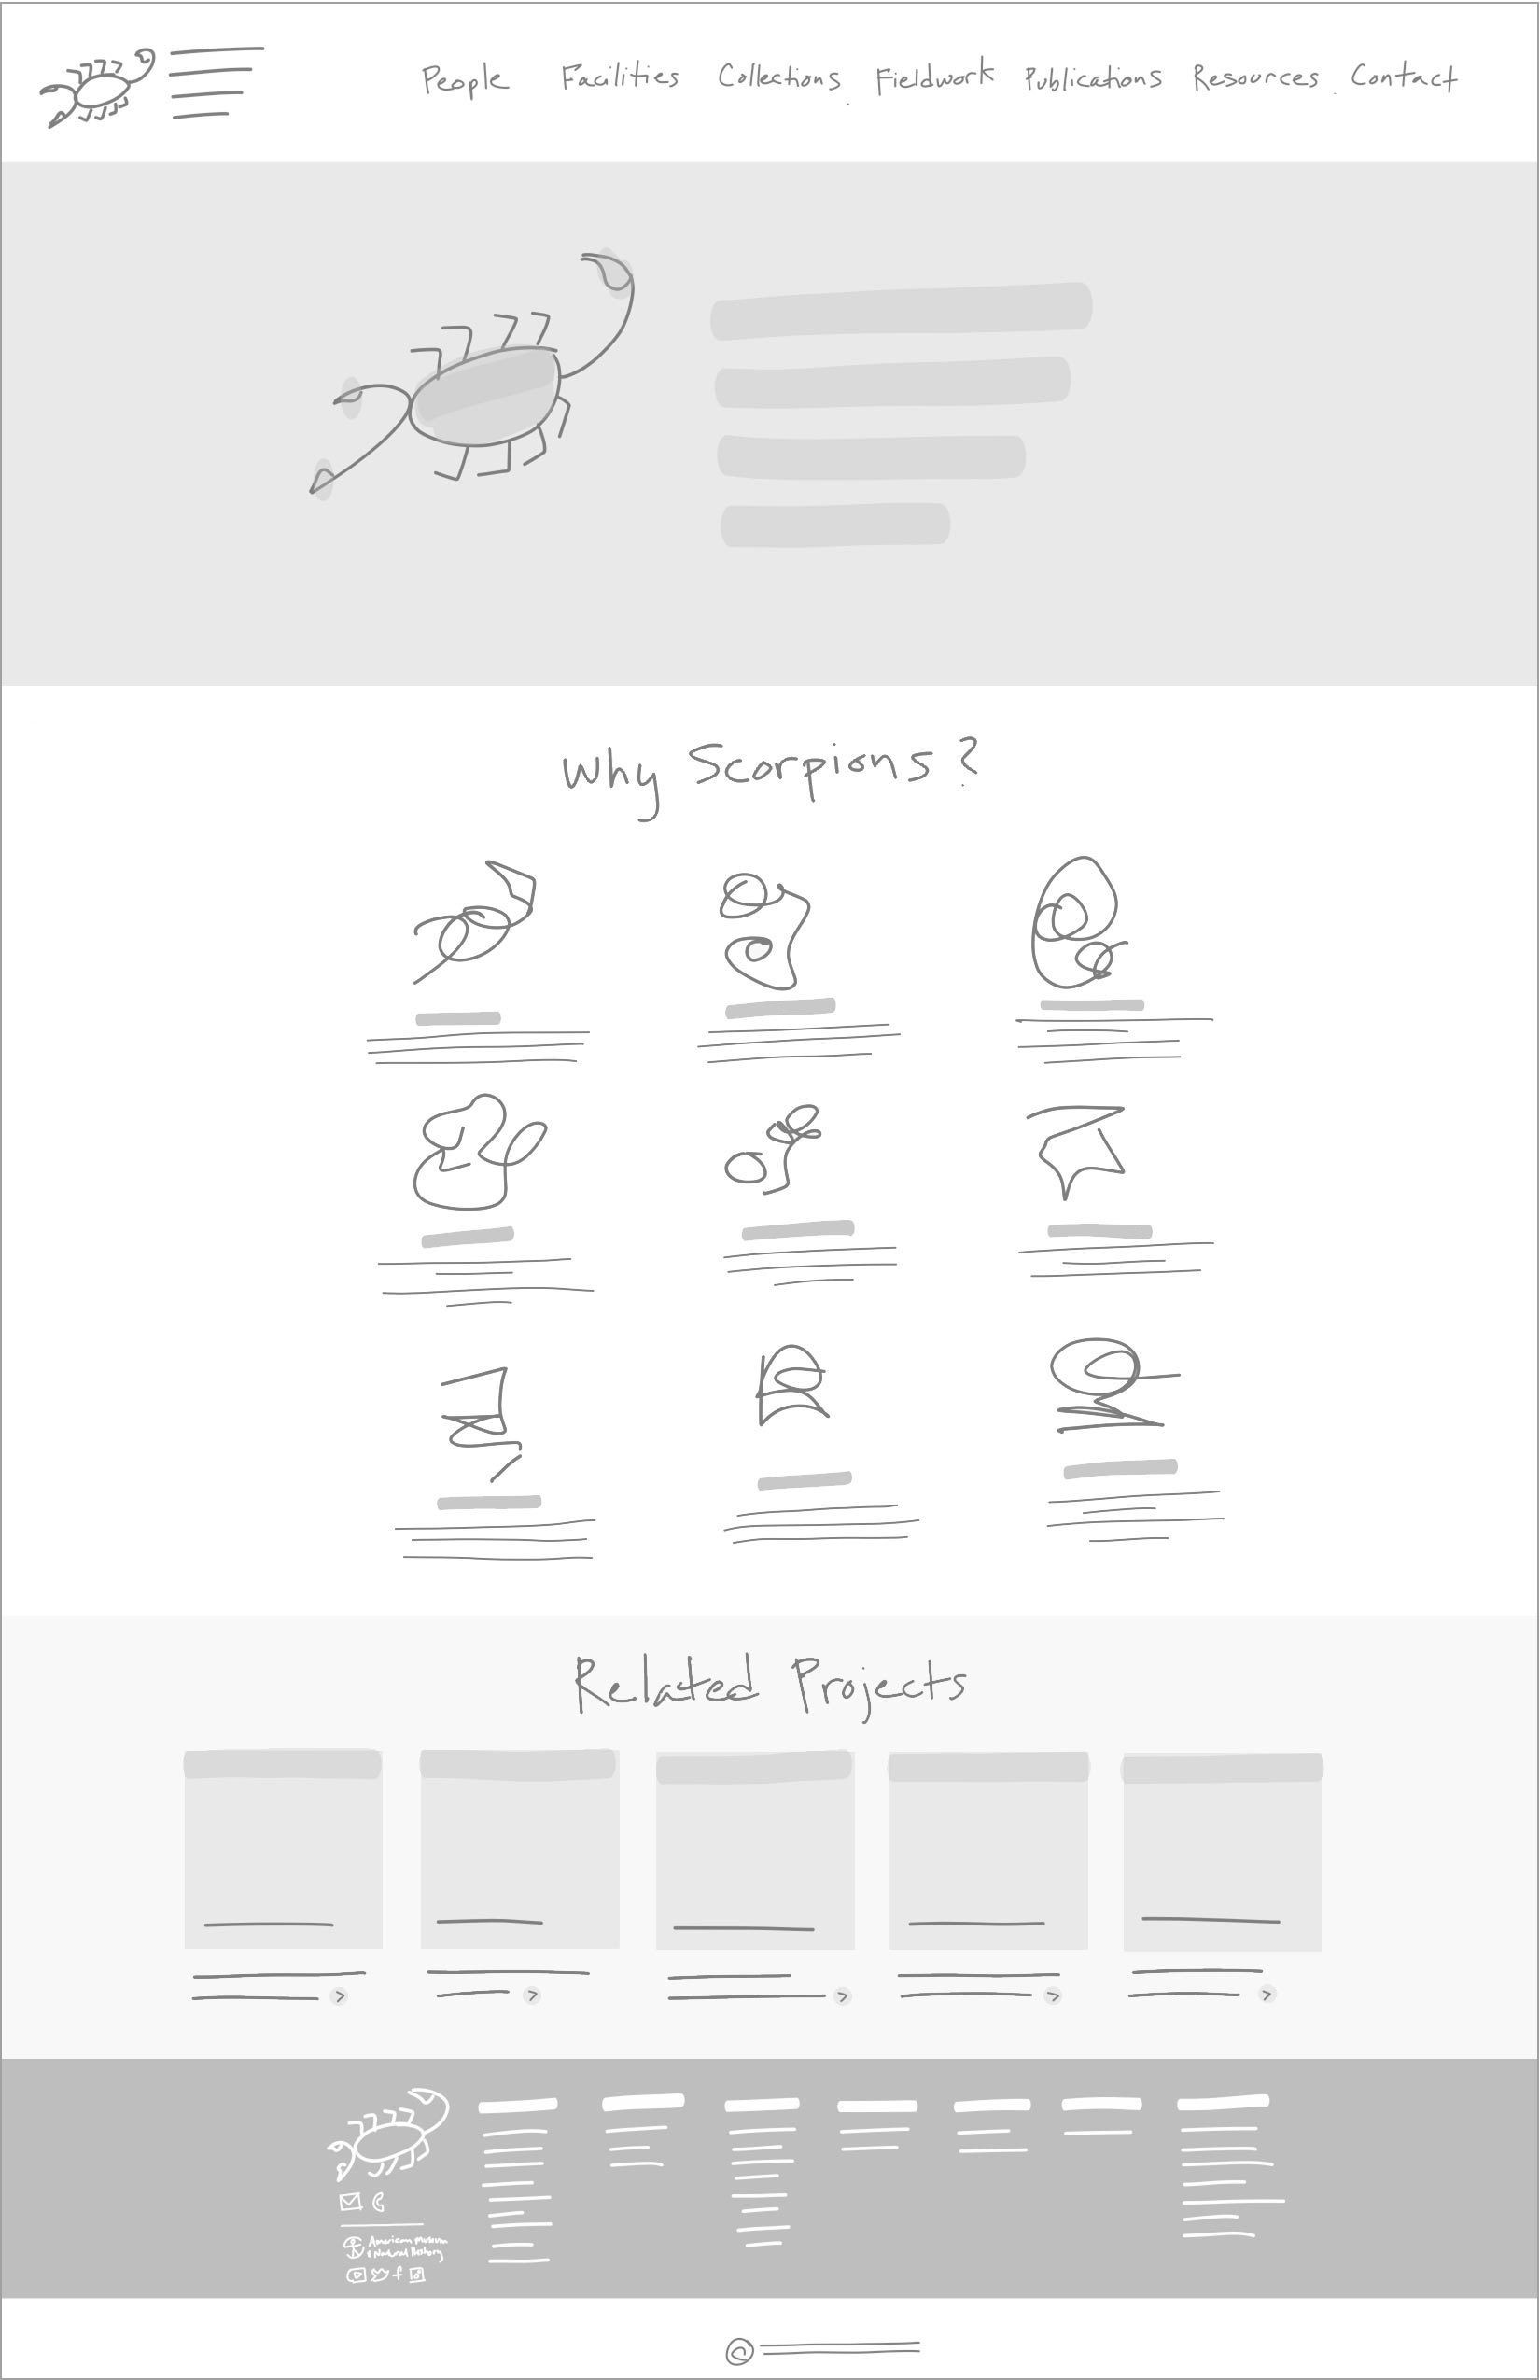 People Facilities Collections Fieldwork Publications Resources Contact
Why Scorpions?
Related Projects
American Museum
Natural History